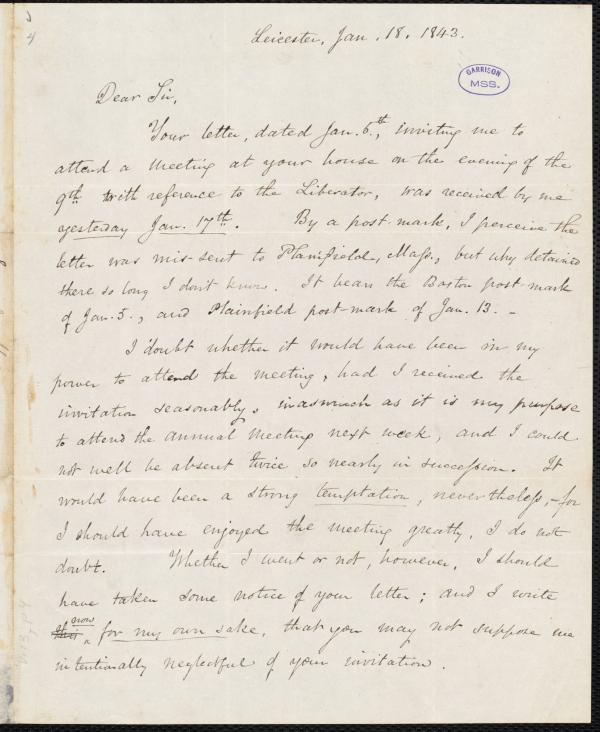 Leicester, Jan. 18. 1843.
GARRISON
MSS.
Dear Sir,
Your letter, dated Jan. 5th, inviting me to
attend a meeting at your house on the evening of the
9th with reference to the Liberator, was received by me
yesterday Jan. 17th. By a post-mark, I perceive the
letter was mis-sent to Plainfield, Mass., but why detained
there so long I don't know. It bears the Boston post-mark
of Jan. 5., and Plainfield post-mark of Jan. 13. -
I doubt whether it would have been in my
power to attend the meeting, had I received the
invitation seasonably, inasmuch as it is my purpose
to attend the annual meeting next week, and I could
not well be absent twice so nearly in succession. It
would have been a strong temptation, nevertheless, - for
I should have enjoyed the meeting greatly, I do not
doubt. Whether I went or not, however, I should
have taken some notice of your letter; and I write
now
for my own sake, that you may not suppose me
intentionally neglectful of your invitation.